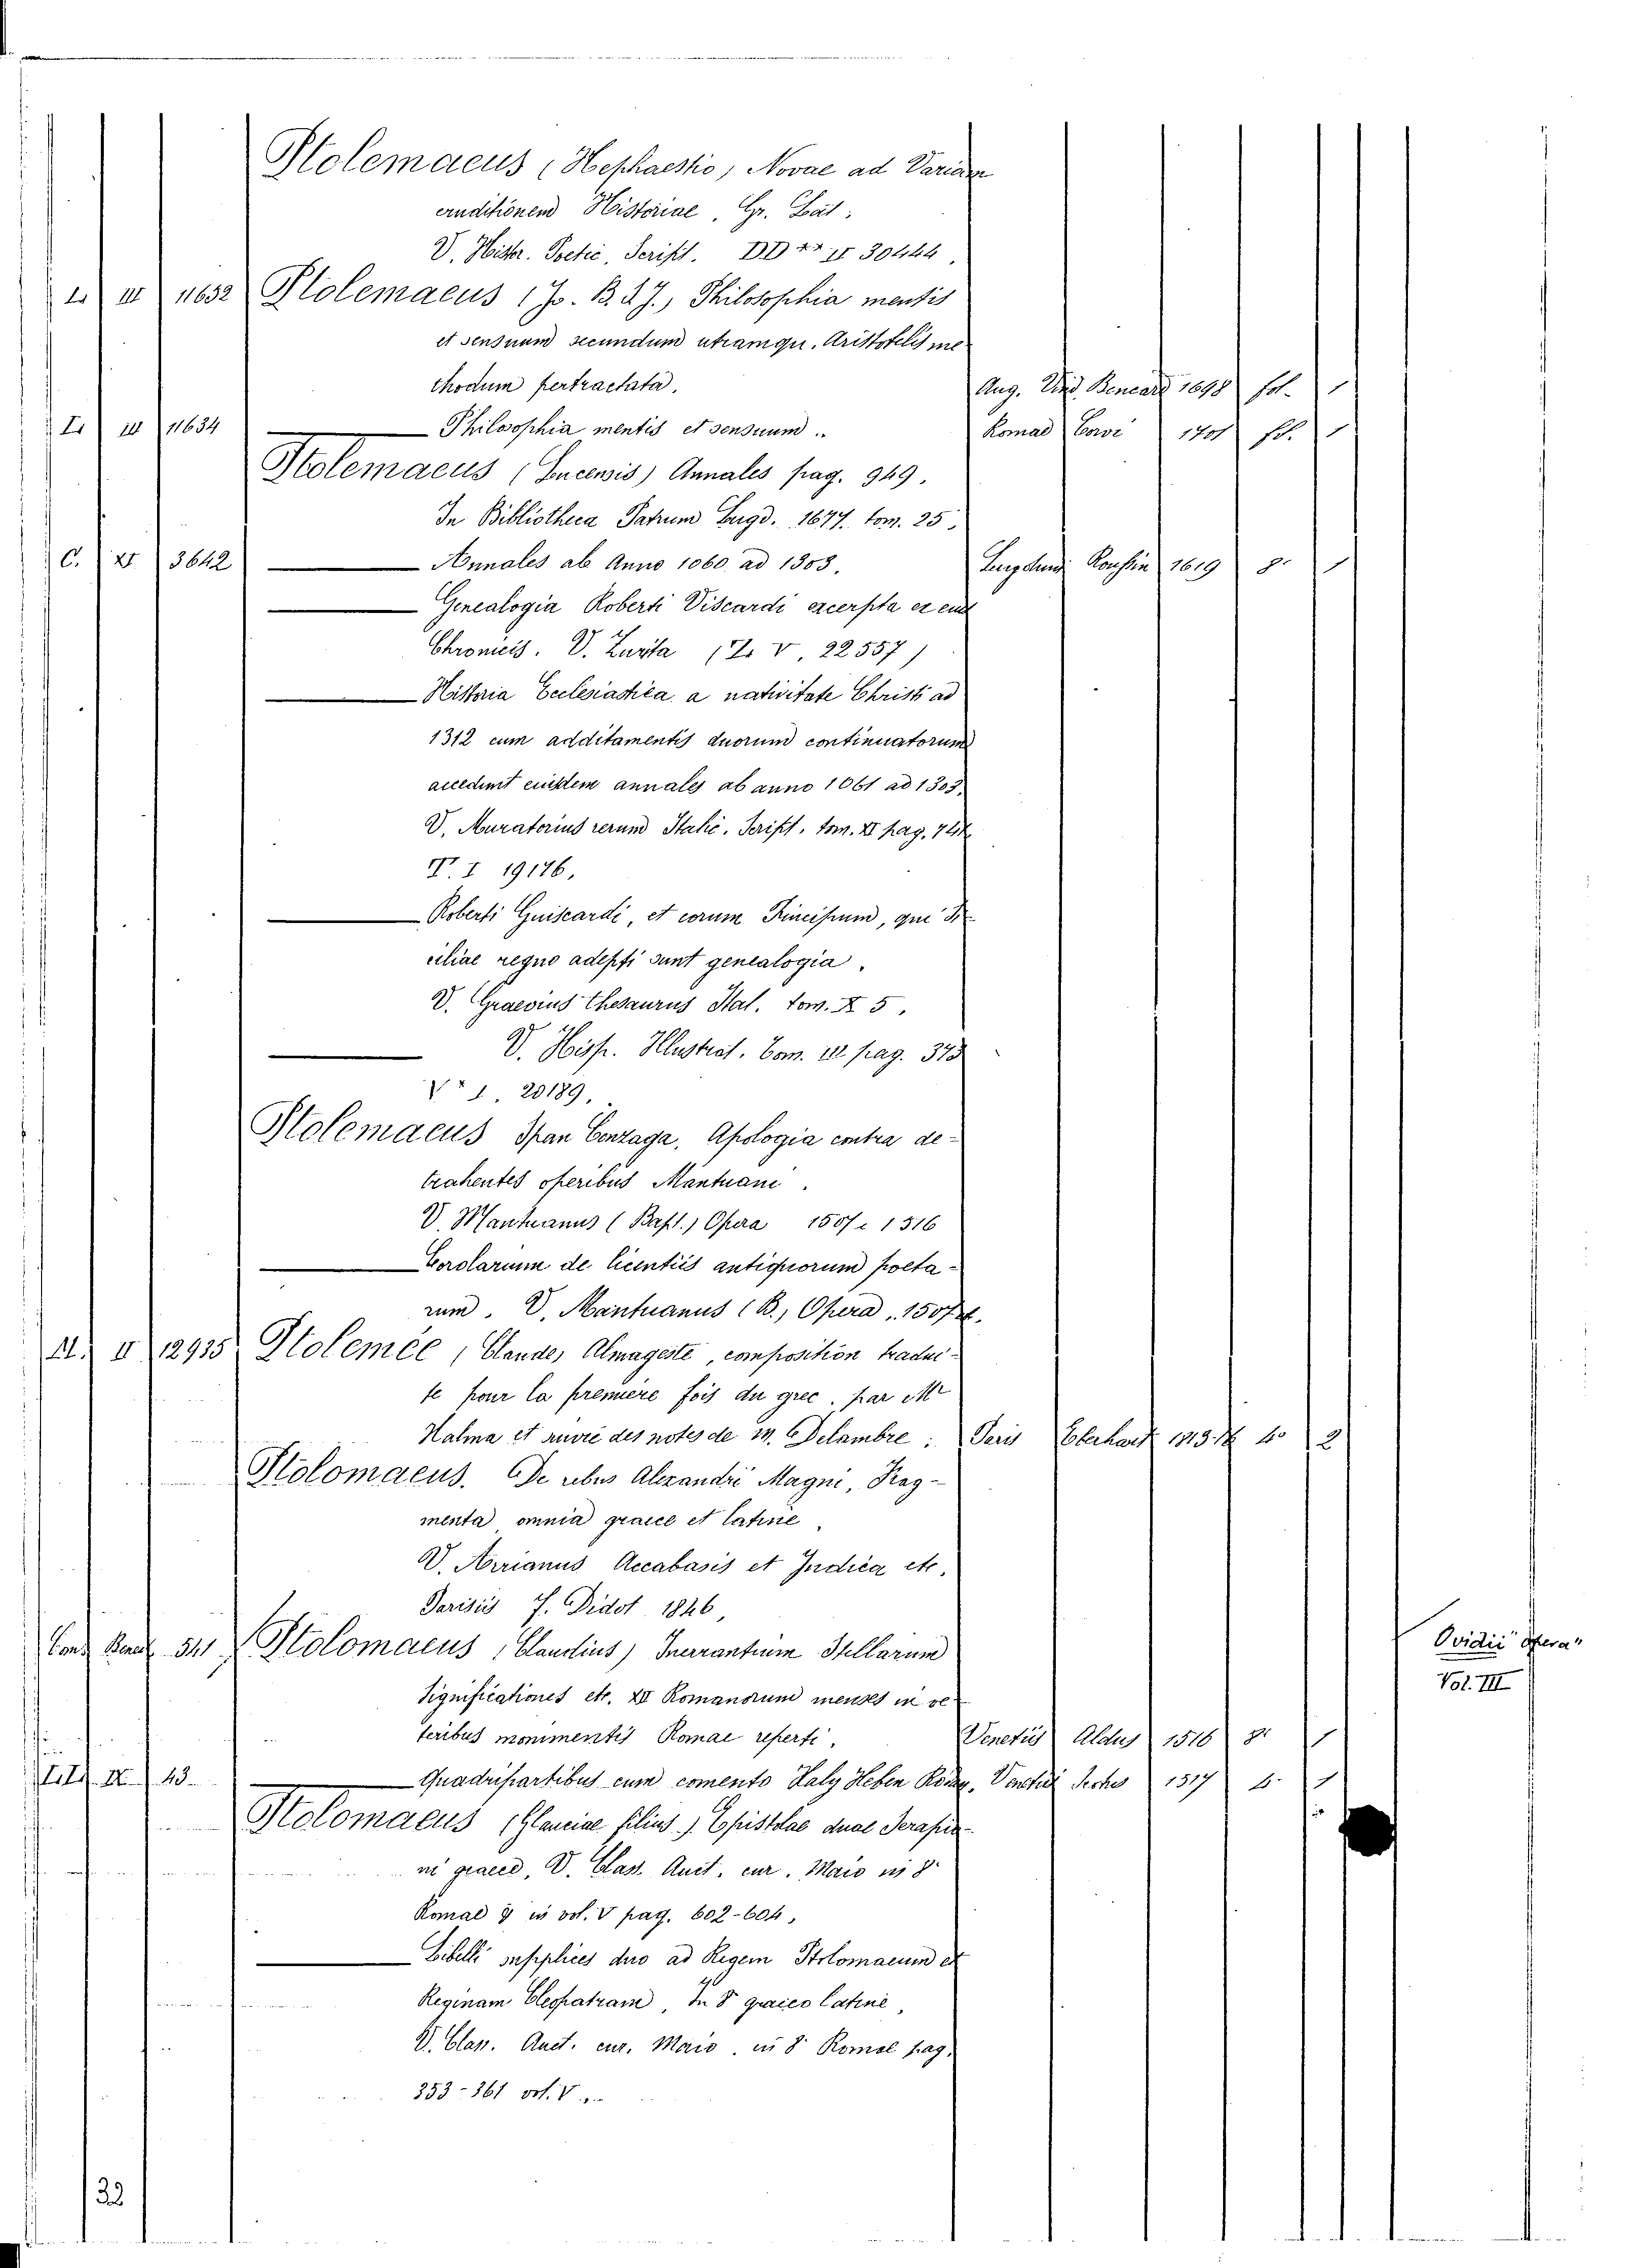 Ptolemaeus (Hephaestio, Novae ad Variam
eruditionem Historiae, Gr. Lat.
V. Histor. Poetic. Script. DD ** II 30444.
L. III 11632 Ptolemaeus (Jo. B. d. J., Philosophia mentis
et sensuum secundum utramqu. Aristotelis me
thodum pertractata. Aug. Vind. Bencard 1698 fol. 1
L. III 11634 Philosophia mentis et sensuum. Romae Corvi 1701 fol. 1
Ptolemaeus (Lucensis) Annales pag. 949.
In Bibliotheca Patrum Lugd. 1677. tom. 25.
C. XI 3642 Annales ab Anno 1060 ad 1303. Lungduni Roussin 1619 8º 1
Genealogia Roberti Viscardi excerpta ex eius
Chronicis. V. Zurita (L. V. 22557)
Historia Ecclesiastica a nativitate Christi ad
1312 cum additamentis duorum continuatorum
accedunt eiusdem annales ab anno 1061 ad 1303.
V. Muratorius rerum Italic. Script. tom. XI pag. 741
T. I 19176.
Roberti Guiscardi, et eorum Principum, qui Si
ciliae regno adepti sunt genealogia.
V. Graevius Thesaurus Ital. tom. X 5.
V. Hisp. Illustrat. Tom. III pag. 373
V * 1. 20189.
Ptolemaeus Span Conzaga, Apologia contra de-
trahentes operibus Mantuani.
V. Mantuanus (Bapt.) Opera 1507 e 1516
Corolarium de licentiis antiquorum poeta-
rum. V. Mantuanus (B.) Opera. 1507 .
M. II 12935 Ptolemée (Claude, Almageste, composition tradui-
te pour la premiere fois du grec, par Mr
Halma et suivie des notes de M. Delambre: Paris Eberhart 1813.16 4º 2
Ptolomaeus. De rebus Alexandri Magni, Frag-
menta omnia graece et latine.
V. Arrianus Accabasis et Indica etc.
Parisiis F. Didot 1846.
Cons. 541 Ptolomaeus (Claudius) Inerrantium Stellarum
Significationes etc. XII Romanorum menses in ve
teribus monimentis Romae reperti. Venetiis Aldus 1516 8º 1
43 Quadripartibus cum comento Haly Heben 1517 1
Ptolomaeus (Glauciae filius.) Epistolae duae Serapio-
ni graece, V. Class. Auct. cur. Maio in 8º
Romae 8 in vol. V pag. 602-604,
Libelli supplices duo ad Regem Ptolomaeum et
Reginam Cleopatram, In 8º graeco latine,
V. Clas. Auct. cur. Maio. in 8º Romae pag.
353-361 vol. V.
Ovidii "Opera"
Vol. III
32